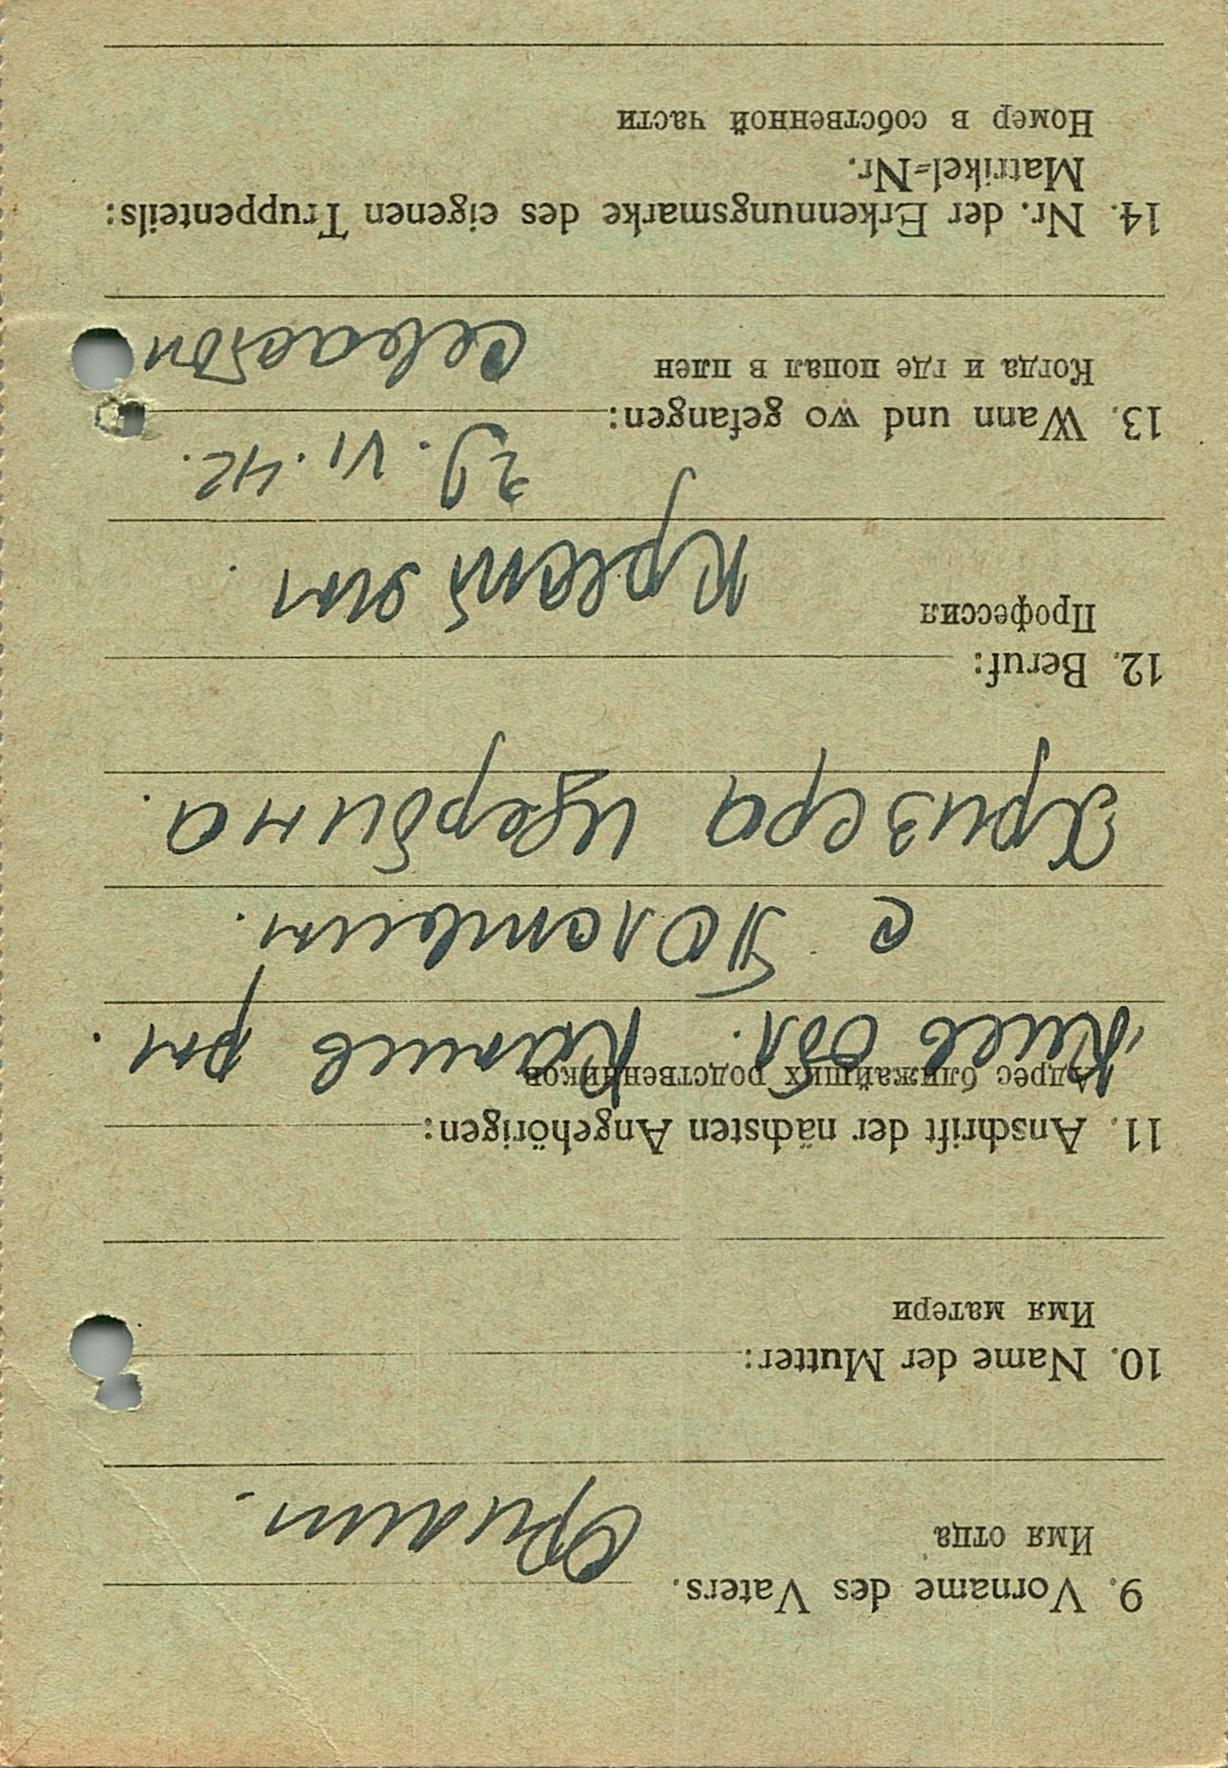 9. Vorname des Vaters.
Имя отца
Филип.
10. Name der Mutter:
Имя матери
11. Anschrift der nächsten Angehörigen:
Адрес ближайших родственников
Киев Обл. Канив рн.
с
Хризера Щербина.
12. Beruf:
Профессия
29. VI. 42.
13. Wann und wo gefangen:
Когда и где попал в плен
14. Nr. der Erkennungsmarke des eigenen Truppenteils:
Matrikel=Nr.
Номер в собственной части